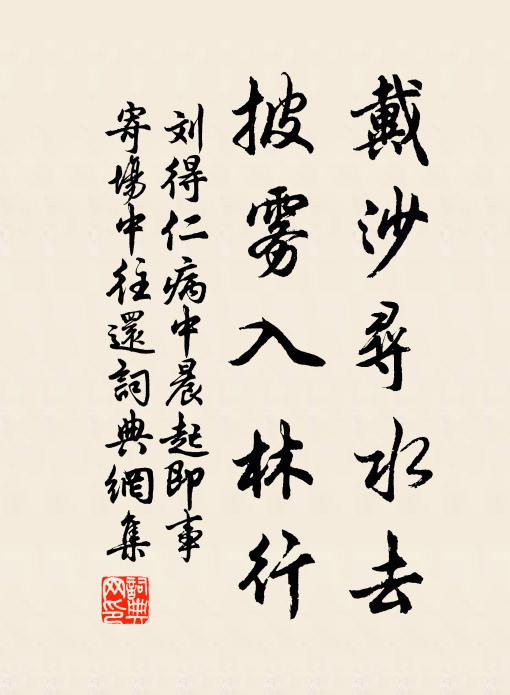 戴沙尋水去
披雾入林行
刘得仁病中晨起即事
寄場中往還詞典網集
詞典网印